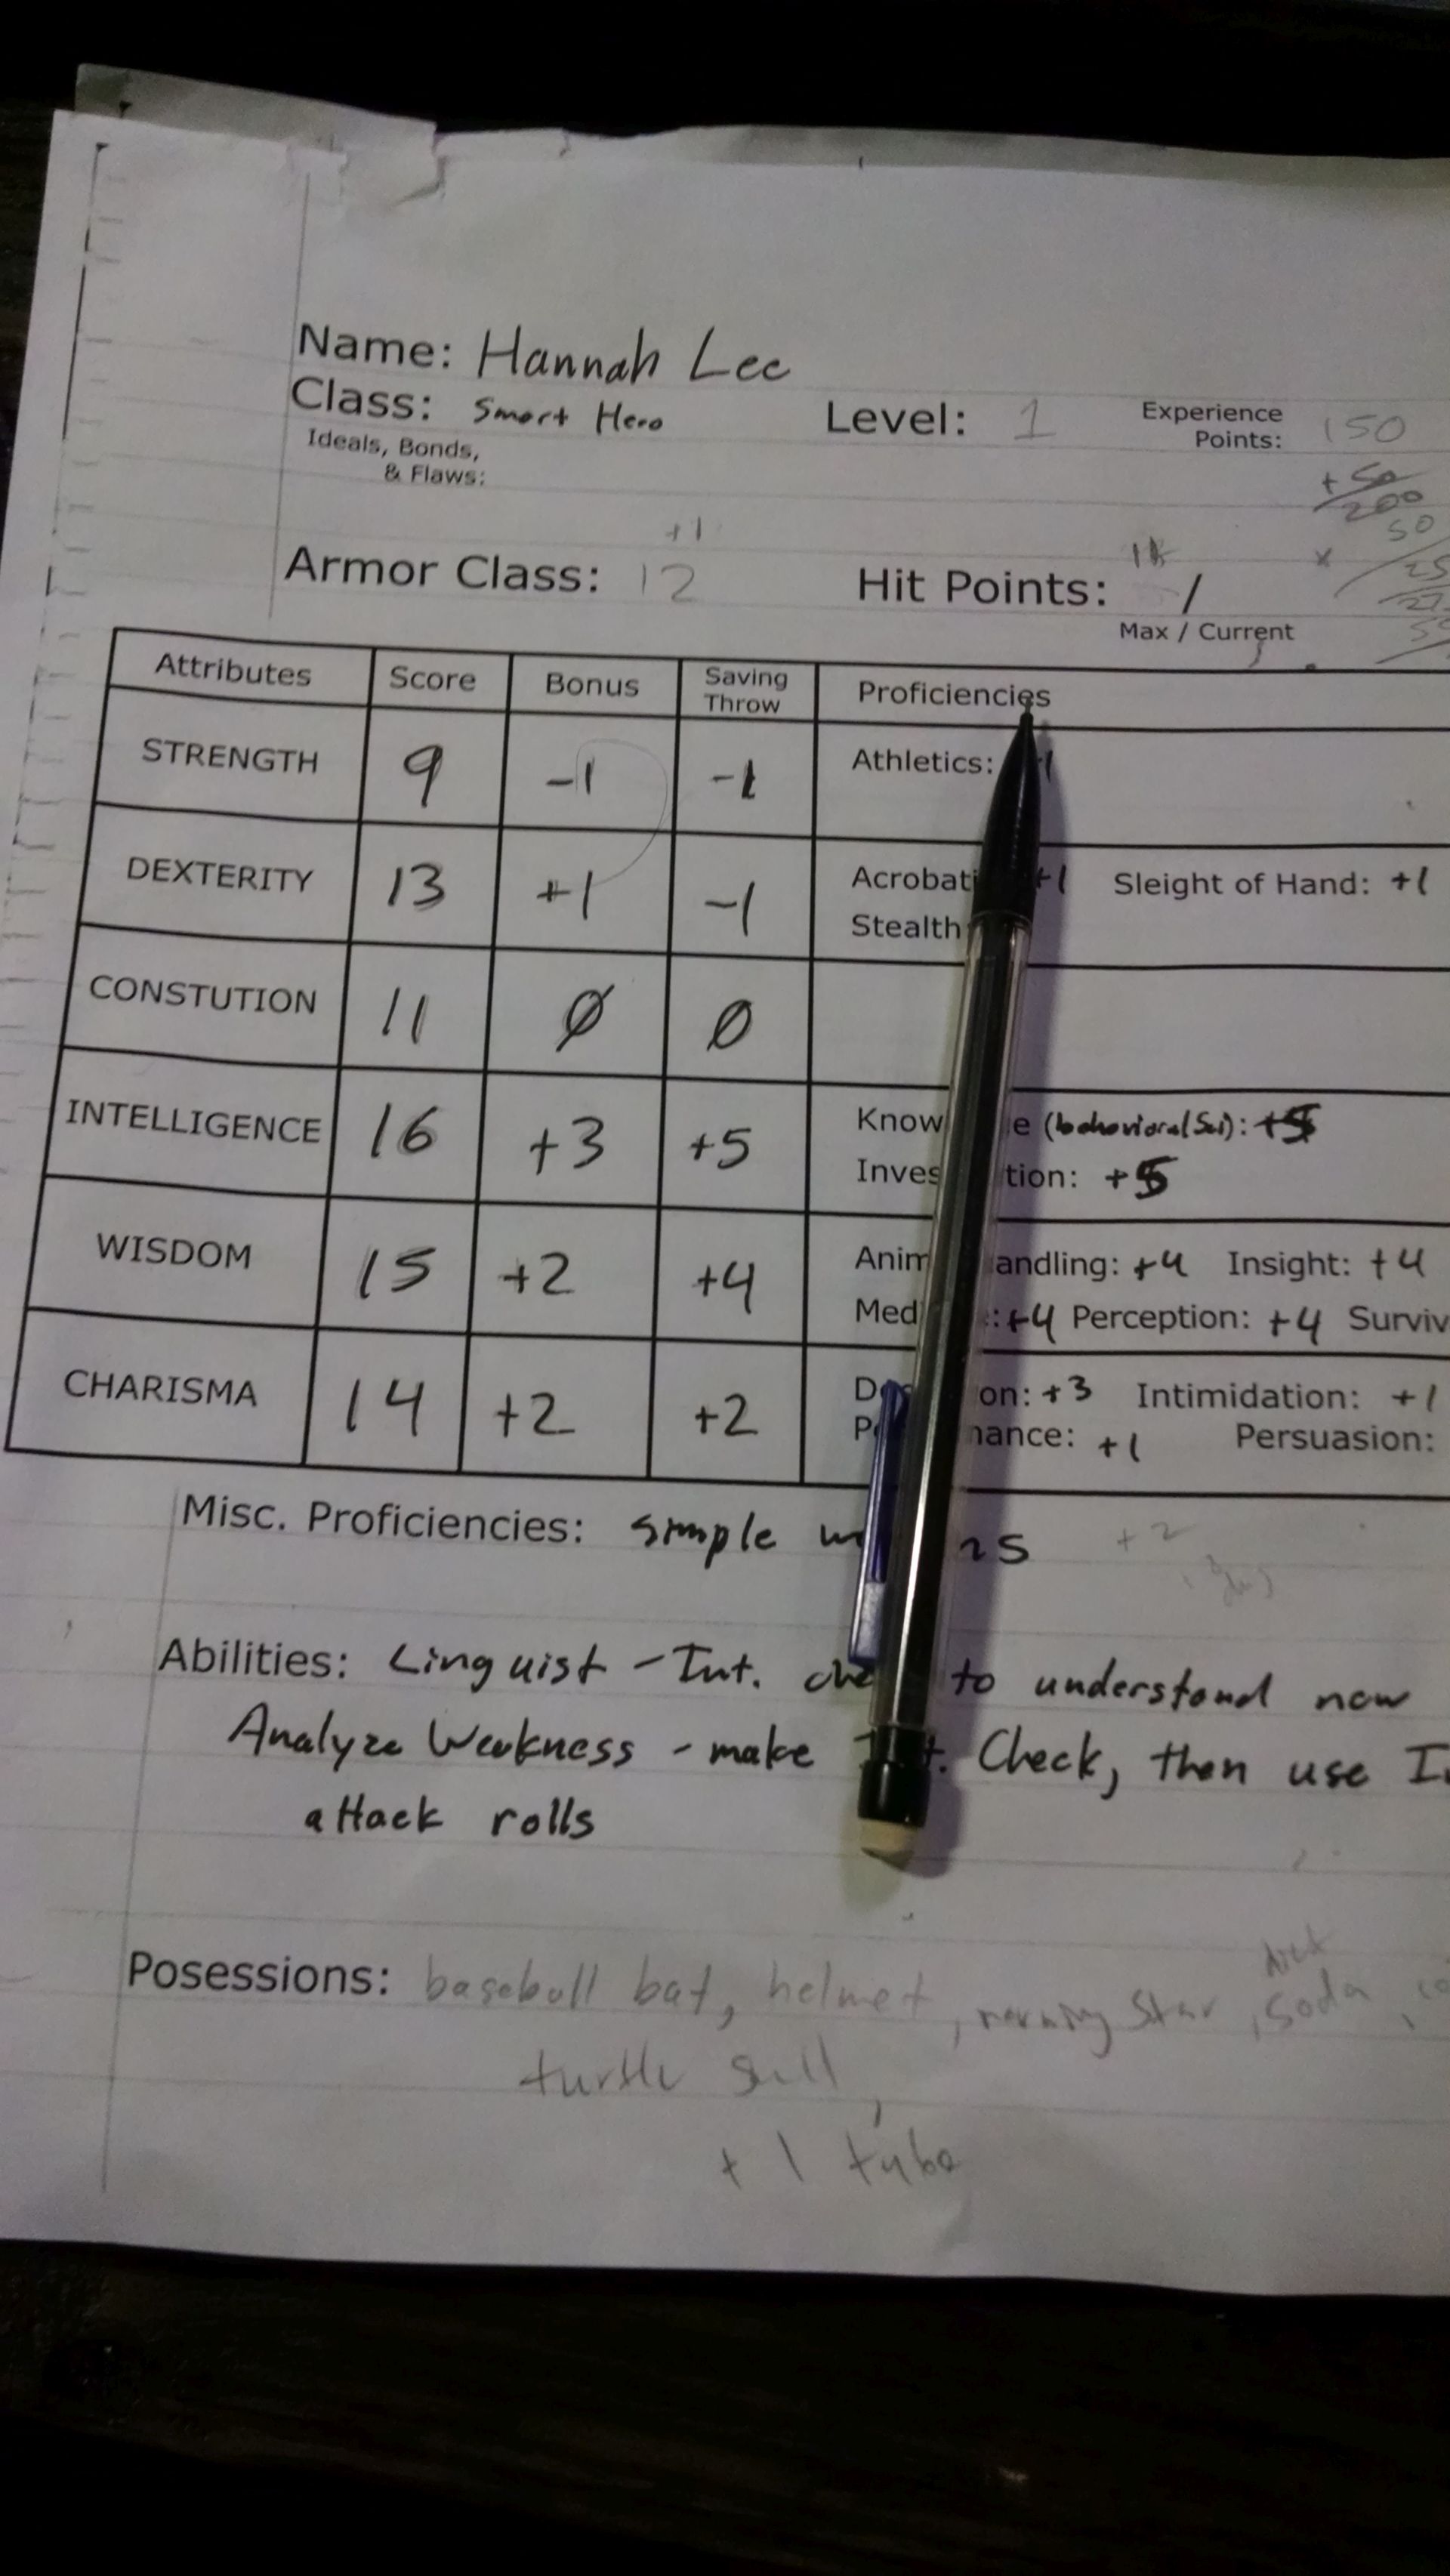 Name: Hannah Lee
Class: Smart Hero Level: 1 Experience Points: 150
Ideals, Bonds, & Flaws:
+50
200
50
+1
Armor Class: 12 Hit Points: /
Max / Current
Attributes Score Bonus Saving Throw Proficiencies
STRENGTH 9 -1 -1 Athletics:
DEXTERITY 13 +1 -1 +1 Sleight of Hand: +1
Stealth
CONSTUTION 11 0 0
INTELLIGENCE 16 +3 +5 (behavioral Sci): +5
+5
WISDOM 15 +2 +4 +4 Insight: +4
+4 Perception: +4
CHARISMA 14 +2 +2 +3 Intimidation: +1
+1 Persuasion:
Misc. Proficiencies: simple +2
Abilities: Linguist - Int. to understand new
Analyze Weakness - make Check, then use
attack rolls
Posessions: baseball bat, helmet, morning star, soda,
turtle
+1 tube